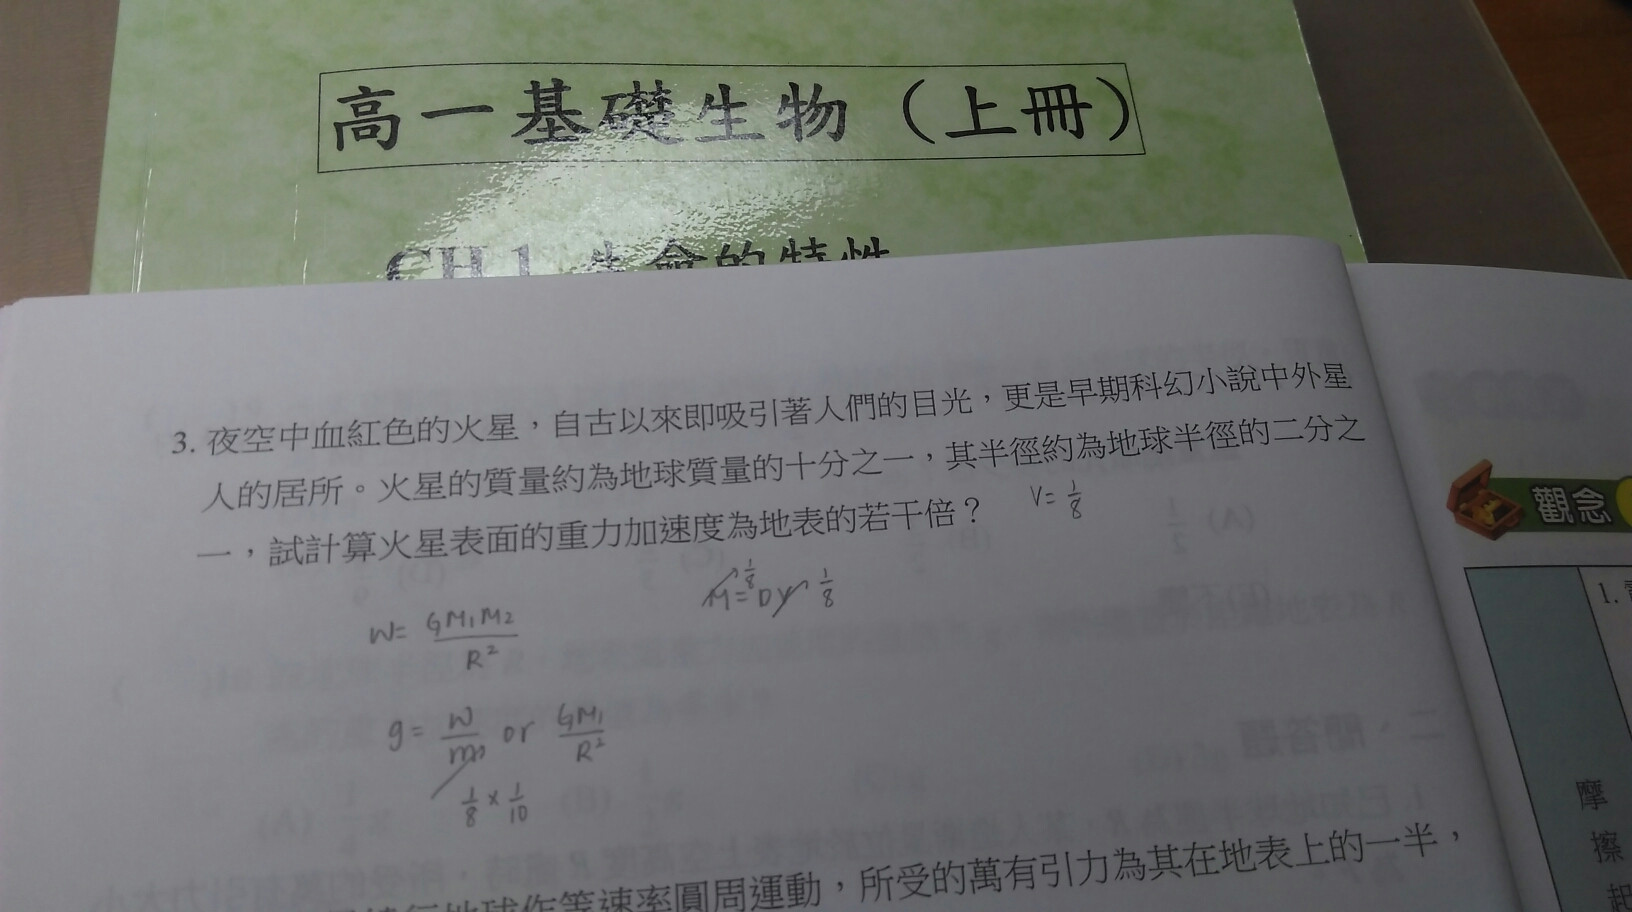 高一基礎生物（上冊）
CH 1 生命的特性
3. 夜空中血紅色的火星，自古以來即吸引著人們的目光，更是早期科幻小說中外星
人的居所。火星的質量約為地球質量的十分之一，其半徑約為地球半徑的二分之
一，試計算火星表面的重力加速度為地表的若干倍？
V= 1/8
M=DV 1/8 1/8
W= GM₁M₂/R²
g= W/m or GM₁/R²
1/8 × 1/10
繞行地球作等速率圓周運動，所受的萬有引力為其在地表上的一半，
觀念
1.
摩
擦
起